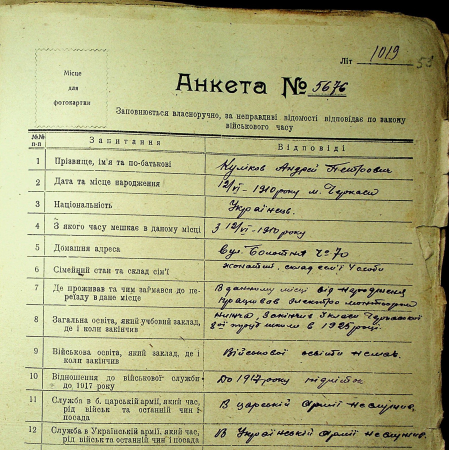 Літ 1019 53
Місце
для
фотокартки
Анкета № 5676
Заповнюється власноручно, за неправдиві відомості відповідає по закону
військового часу
№№ п-п Запитання Відповіді
1 Прізвище, ім'я та по-батькові Куліков Андрей Петрович
2 Дата та місце народження 12/VI - 1910 року м. Черкаси
3 Національність Українець.
4 З якого часу мешкає в даному місці з 12/VI - 1910 року
5 Домашня адреса вул Болотня № 70
6 Сімейний стан та склад сім'ї жонатий, склад сем'ї 4 особи
7 Де проживав та чим займався до пе- В данному місці від народження
реїзду в дане місце працював электро монтером
8 Загальна освіта, який учбовий заклад, закінчив класи Черкаської
де і коли закінчив школи в 1925 році.
9 Військова освіта, який заклад, де і Військової освіти немає.
коли закінчив
10 Відношення до військової служби До 1917 року підліток
до 1917 року
11 Служба в б. царській армії, який час, В царській армії не служив.
рід військ та останній чин і
посада
12 Служба в Українській армії, який час, В Українській армії не служив.
рід військ та останній чин і посада